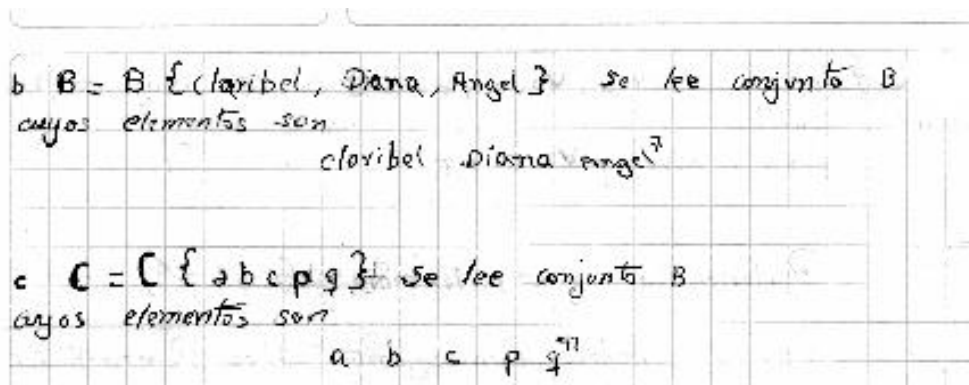 b B = B {Claribel, Diana, Angel} Se lee conjunto B
cuyos elementos son
claribel Diana Angel"
c C = C { a b c p q } Se lee conjunto B
cuyos elementos son
a b c p q"